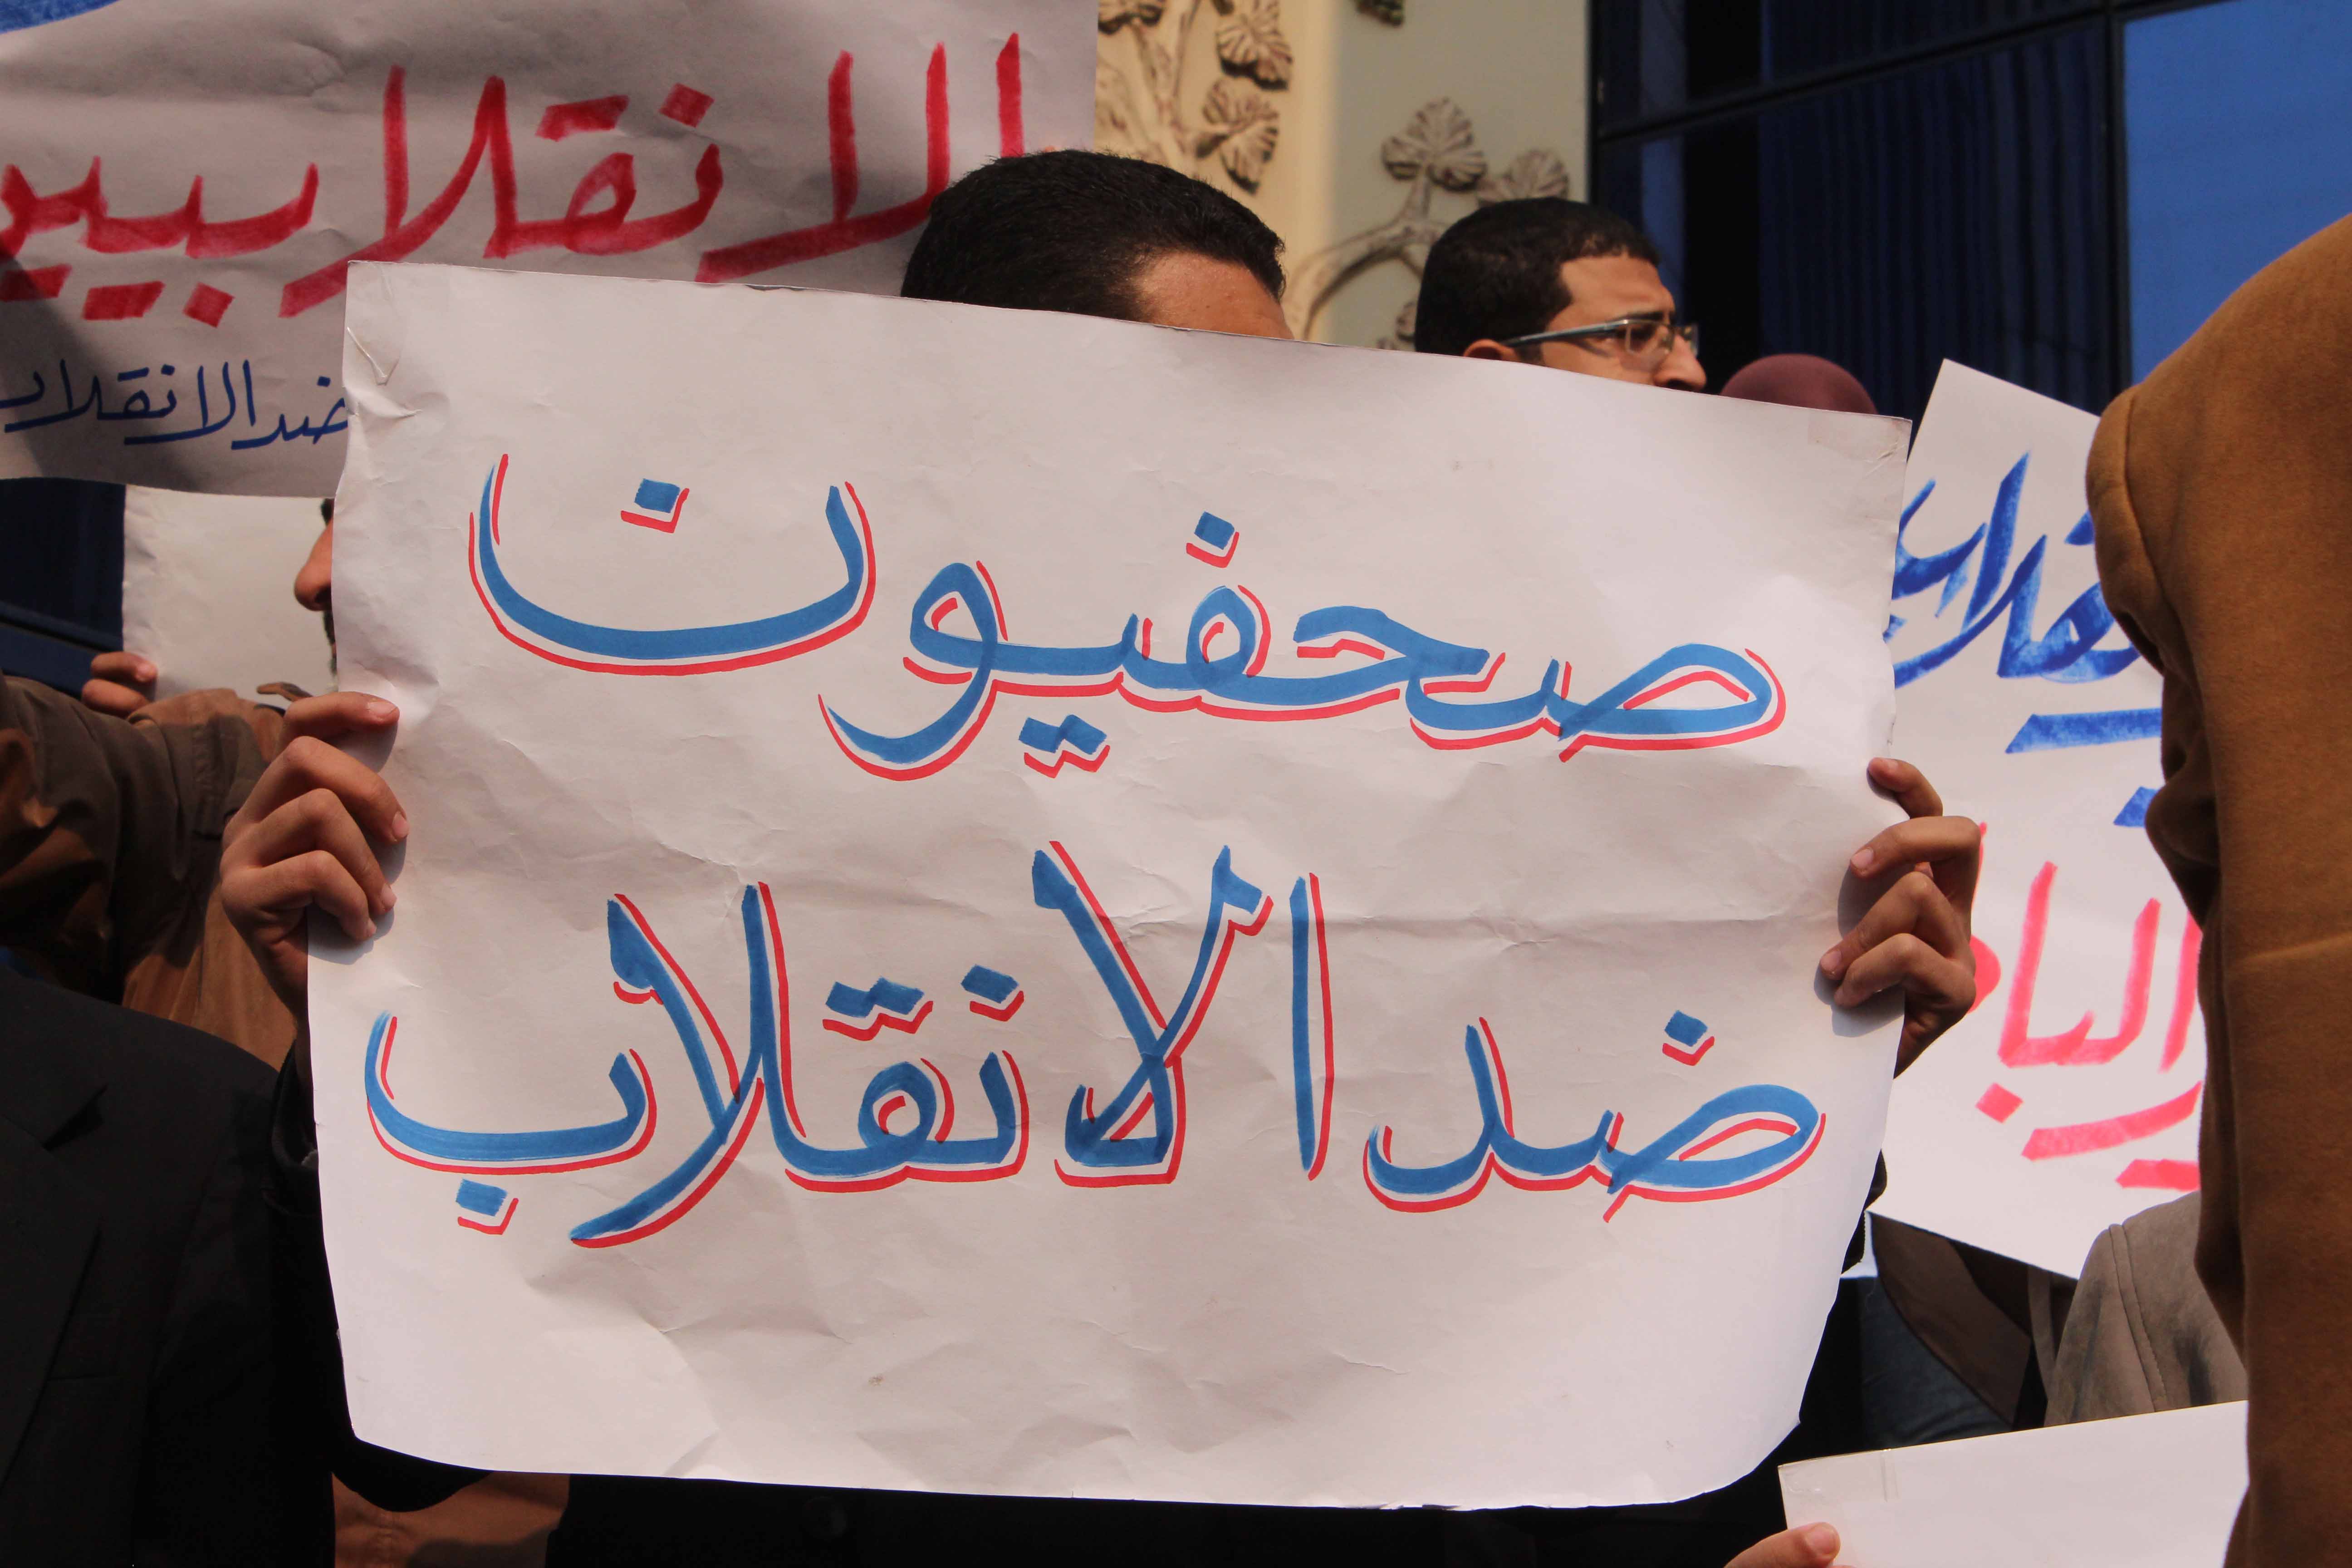 الانقلابيو
ضد الانقلاب
صحفيون
ضد الانقلاب